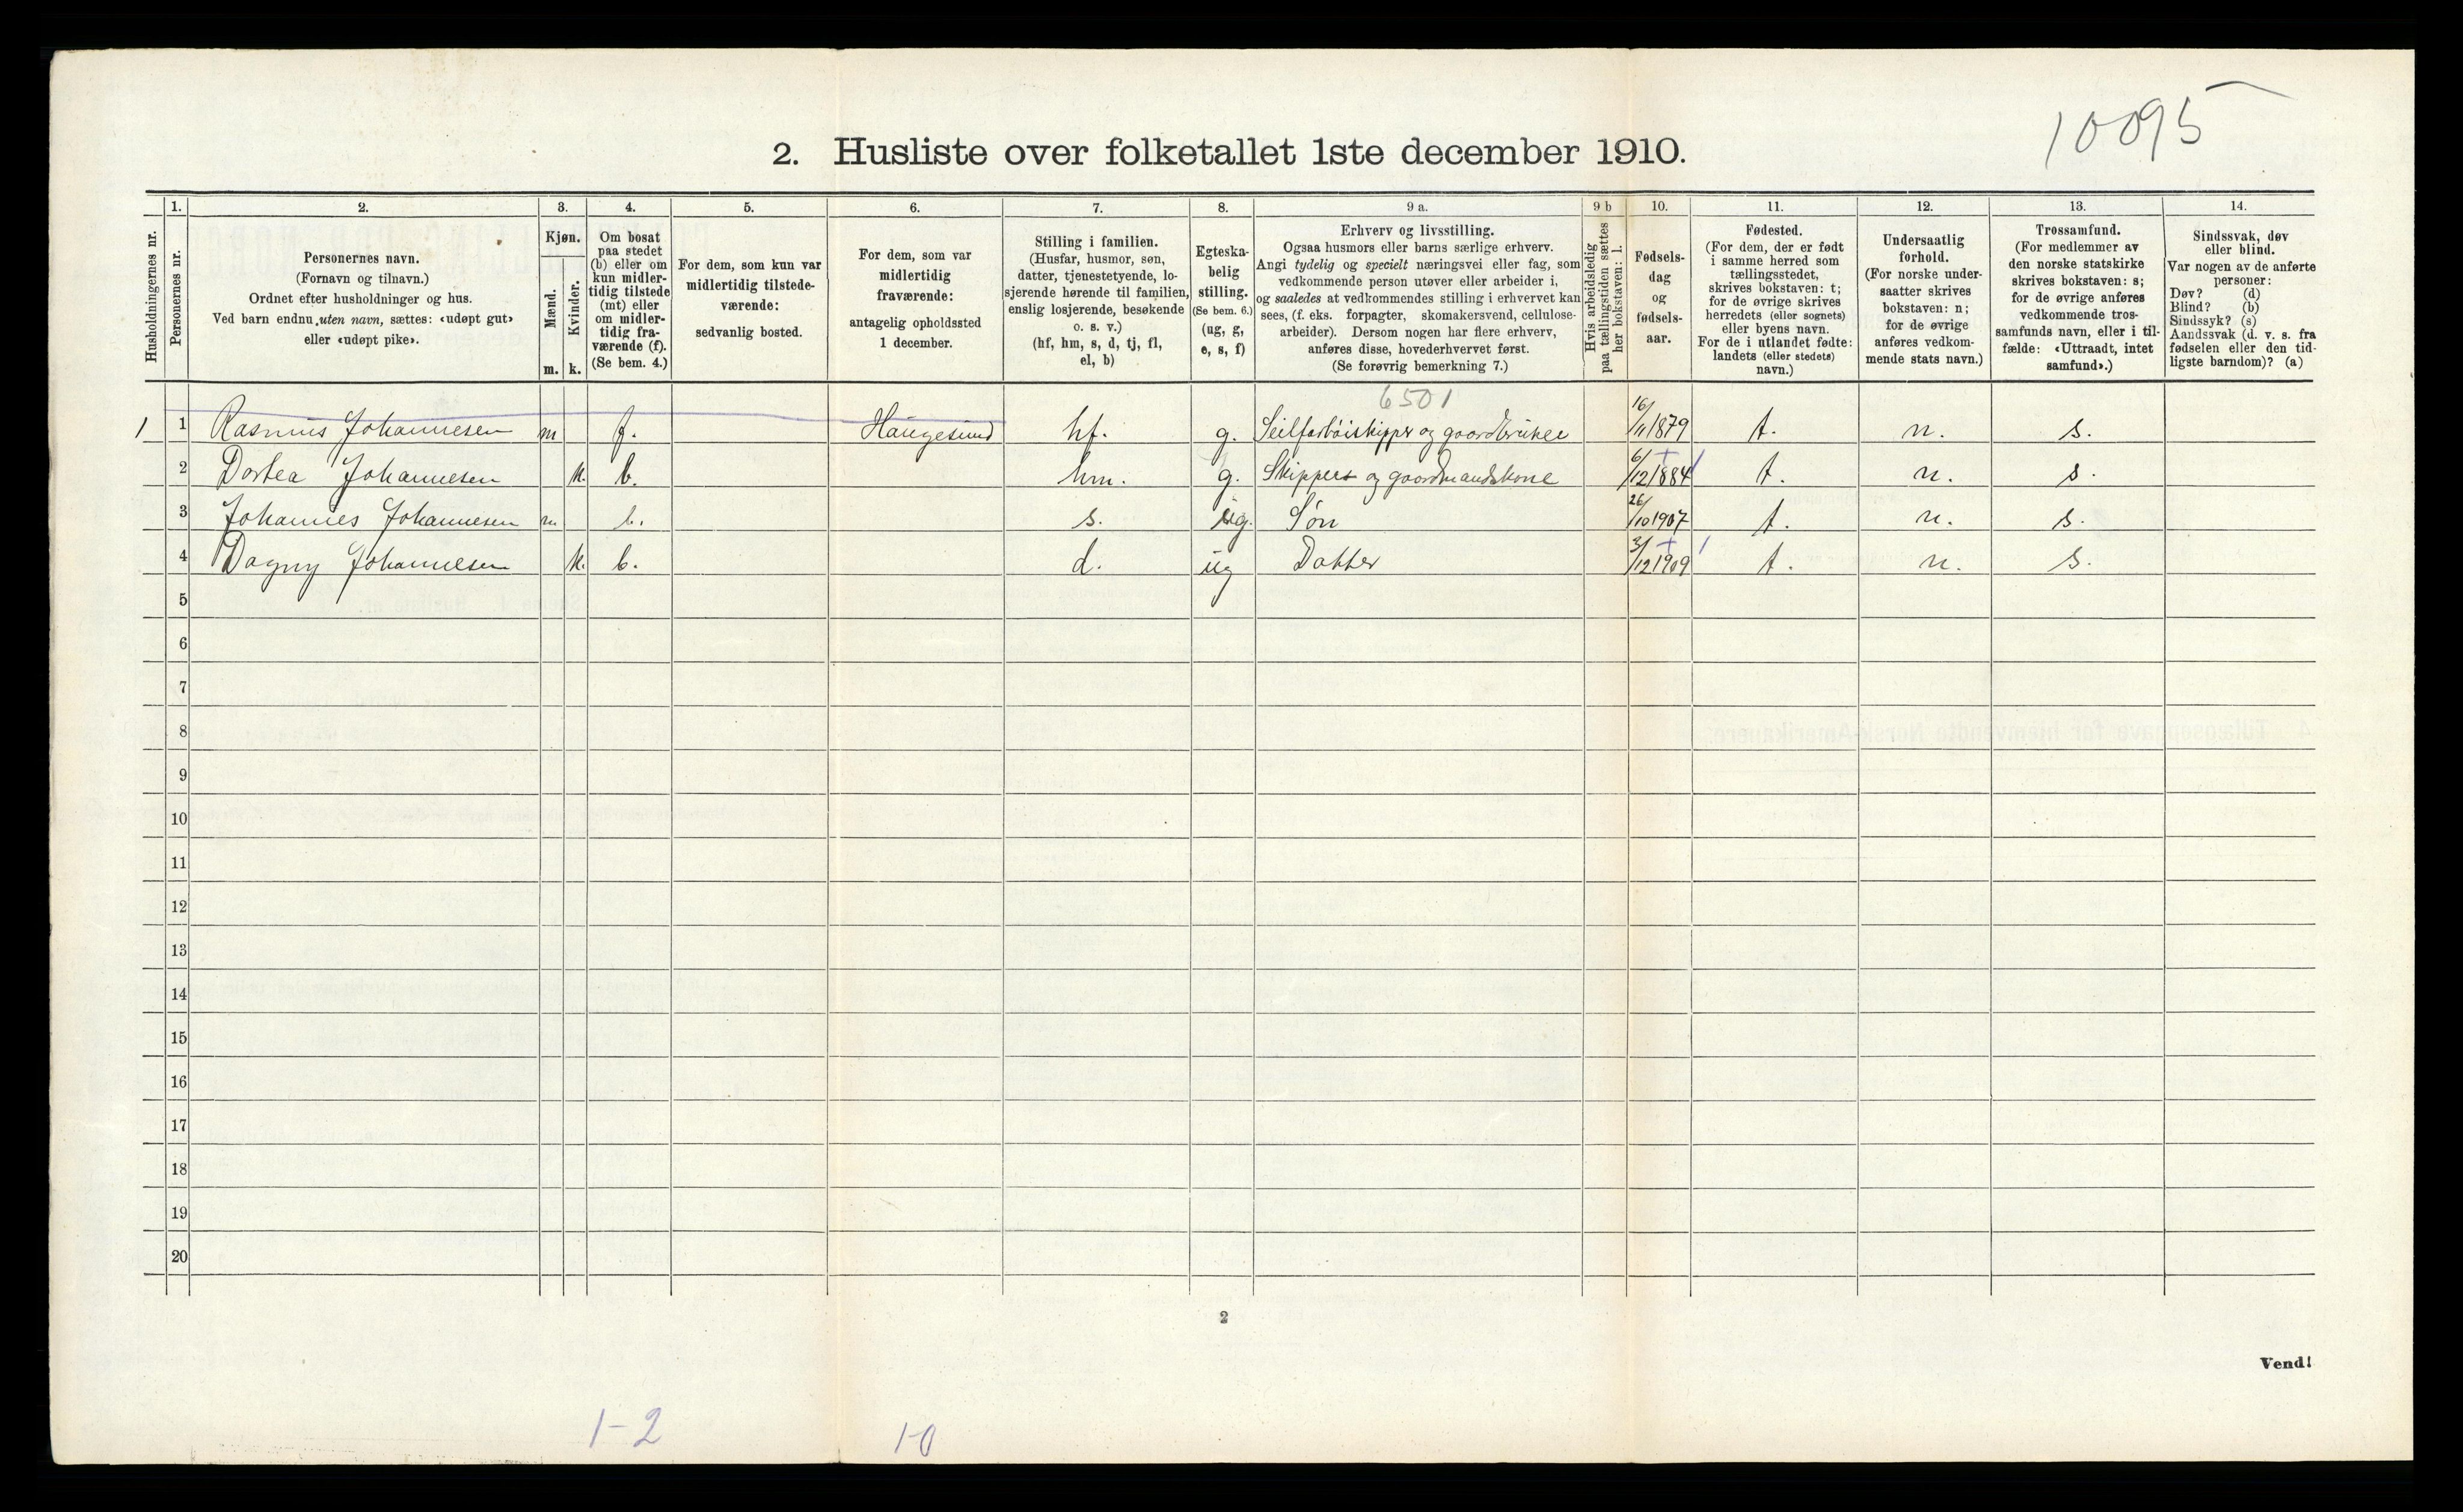 10095
2. Husliste over folketallet 1ste december 1910.
Husholdningernes nr.
1.
Personernes nr.
2.
Personernes navn.
(Fornavn og tilnavn.)
Ordnet efter husholdninger og hus.
Ved barn endnu uten navn, sættes: «udøpt gut»
eller «udøpt pike».
3.
Kjøn.
Mænd.
m.
Kvinder.
k.
4.
Om bosat
paa stedet
(b) eller om
kun midler-
tidig tilstede
(mt) eller
om midler-
tidig fra-
værende (f).
(Se bem. 4.)
5.
For dem, som kun var
midlertidig tilstede-
værende:
sedvanlig bosted.
6.
For dem, som var
midlertidig
fraværende:
antagelig opholdssted
1 december.
7.
Stilling i familien.
(Husfar, husmor, søn,
datter, tjenestetyende, lo-
sjerende hørende til familien,
enslig losjerende, besøkende
o. s. v.)
(hf, hm, s, d, tj, fl,
el, b)
8.
Egteska-
belig
stilling.
(Se bem. 6.)
(ug, g,
e, s, f)
9 a.
Erhverv og livsstilling.
Ogsaa husmors eller barns særlige erhverv.
Angi tydelig og specielt næringsvei eller fag, som
vedkommende person utøver eller arbeider i,
og saaledes at vedkommendes stilling i erhvervet kan
sees, (f. eks. forpagter, skomakersvend, cellulose-
arbeider). Dersom nogen har flere erhverv,
anføres disse, hovederhvervet først.
(Se forøvrig bemerkning 7.)
9 b
Hvis arbeidsledig
paa tællingstiden sættes
her bokstaven: l.
10.
Fødsels-
dag
og
fødsels-
aar.
11.
Fødested.
(For dem, der er født
i samme herred som
tællingsstedet,
skrives bokstaven: t;
for de øvrige skrives
herredets (eller sognets)
eller byens navn.
For de i utlandet fødte:
landets (eller stedets)
navn.)
12.
Undersaatlig
forhold.
(For norske under-
saatter skrives
bokstaven: n;
for de øvrige
anføres vedkom-
mende stats navn.)
13.
Trossamfund.
(For medlemmer av
den norske statskirke
skrives bokstaven: s;
for de øvrige anføres
vedkommende tros-
samfunds navn, eller i til-
fælde: «Uttraadt, intet
samfund».)
14.
Sindssvak, døv
eller blind.
Var nogen av de anførte
personer:
Døv? (d)
Blind? (b)
Sindssyk? (s)
Aandssvak (d. v. s. fra
fødselen eller den tid-
ligste barndom)? (a)
6501
1 1 Rasmus Johannesen m f. Haugesund hf. g. Seilfartøiskipper og gaardbruker 16/11 1879 t. n. s.
2 Dortea Johannesen k. b. hm. g. Skippers og gaardmandskone 6/12 1884 t. n. s.
3 Johannes Johannesen m. b. s. ug. Søn 26/10 1907 t. n. s.
4 Dagny Johannesen k. b. d. ug Datter 3/12 1909 t. n. s.
5
6
7
8
9
10
11
12
13
14
15
16
17
18
19
20
2
Vend!
1-2
1-0